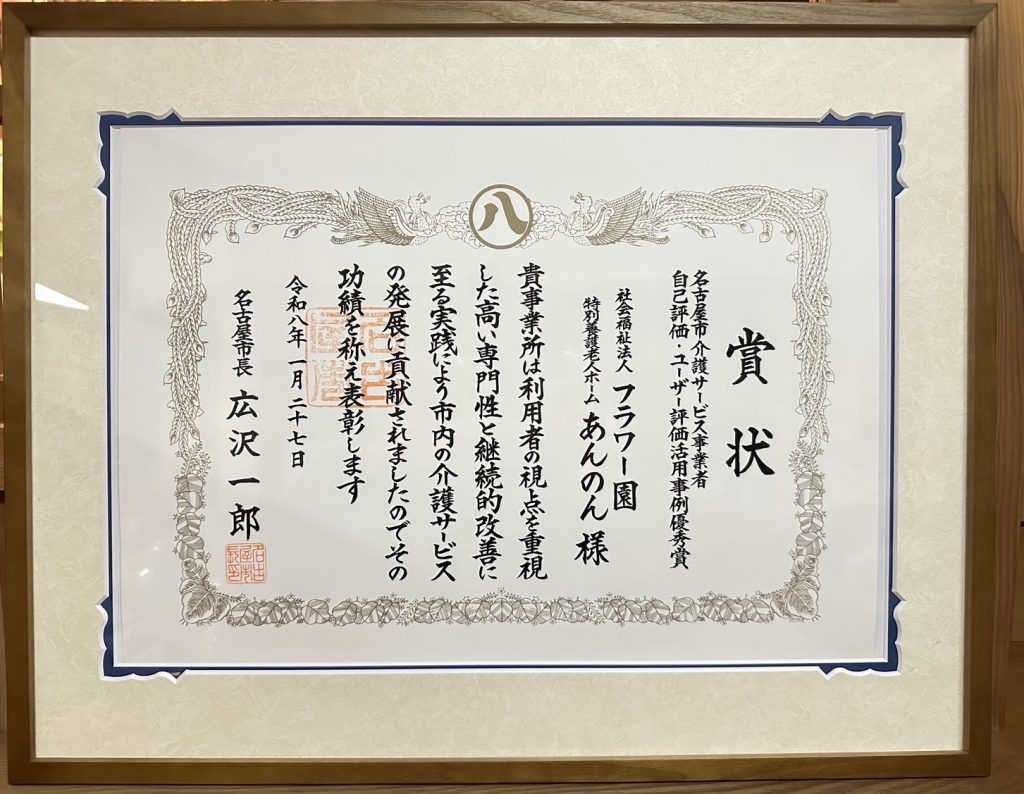 八
賞状
名古屋市介護サービス事業者
自己評価・ユーザー評価活用事例優秀賞
社会福祉法人 フラワー園
特別養護老人ホーム あんのん 様
貴事業所は利用者の視点を重視
した高い専門性と継続的改善に
至る実践により市内の介護サービス
の発展に貢献されましたのでその
功績を称え表彰します
令和八年一月二十七日
名古屋市長 広沢一郎